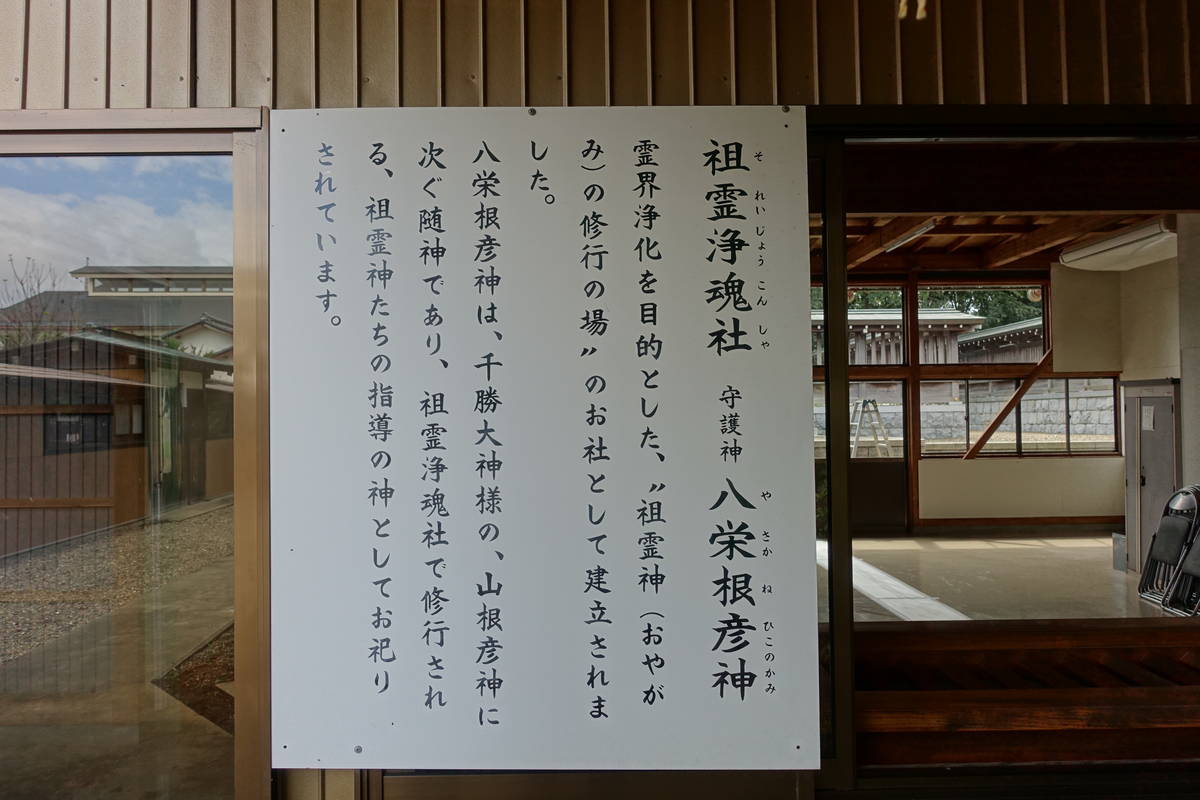 祖霊浄魂社 守護神 八栄根彦神
それいじょうこんしゃ やさかねひこのかみ
霊界浄化を目的とした、〃祖霊神（おやが
み）の修行の場〃のお社として建立されま
した。
八栄根彦神は、千勝大神様の、山根彦神に
次ぐ随神であり、祖霊浄魂社で修行され
る、祖霊神たちの指導の神としてお祀り
されています。